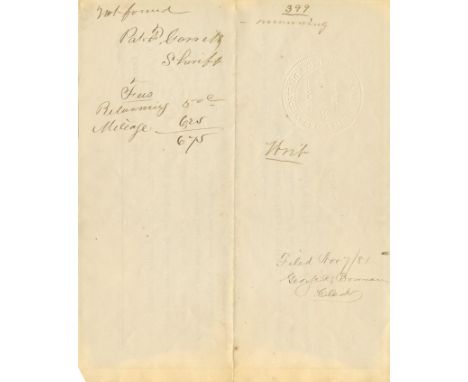 Not found
Pat F. Garrett
Sheriff
Fees
Returning 50c
Mileage 625
675
399
Writ
Filed Nov 7/81
George R. Bowman
Clerk